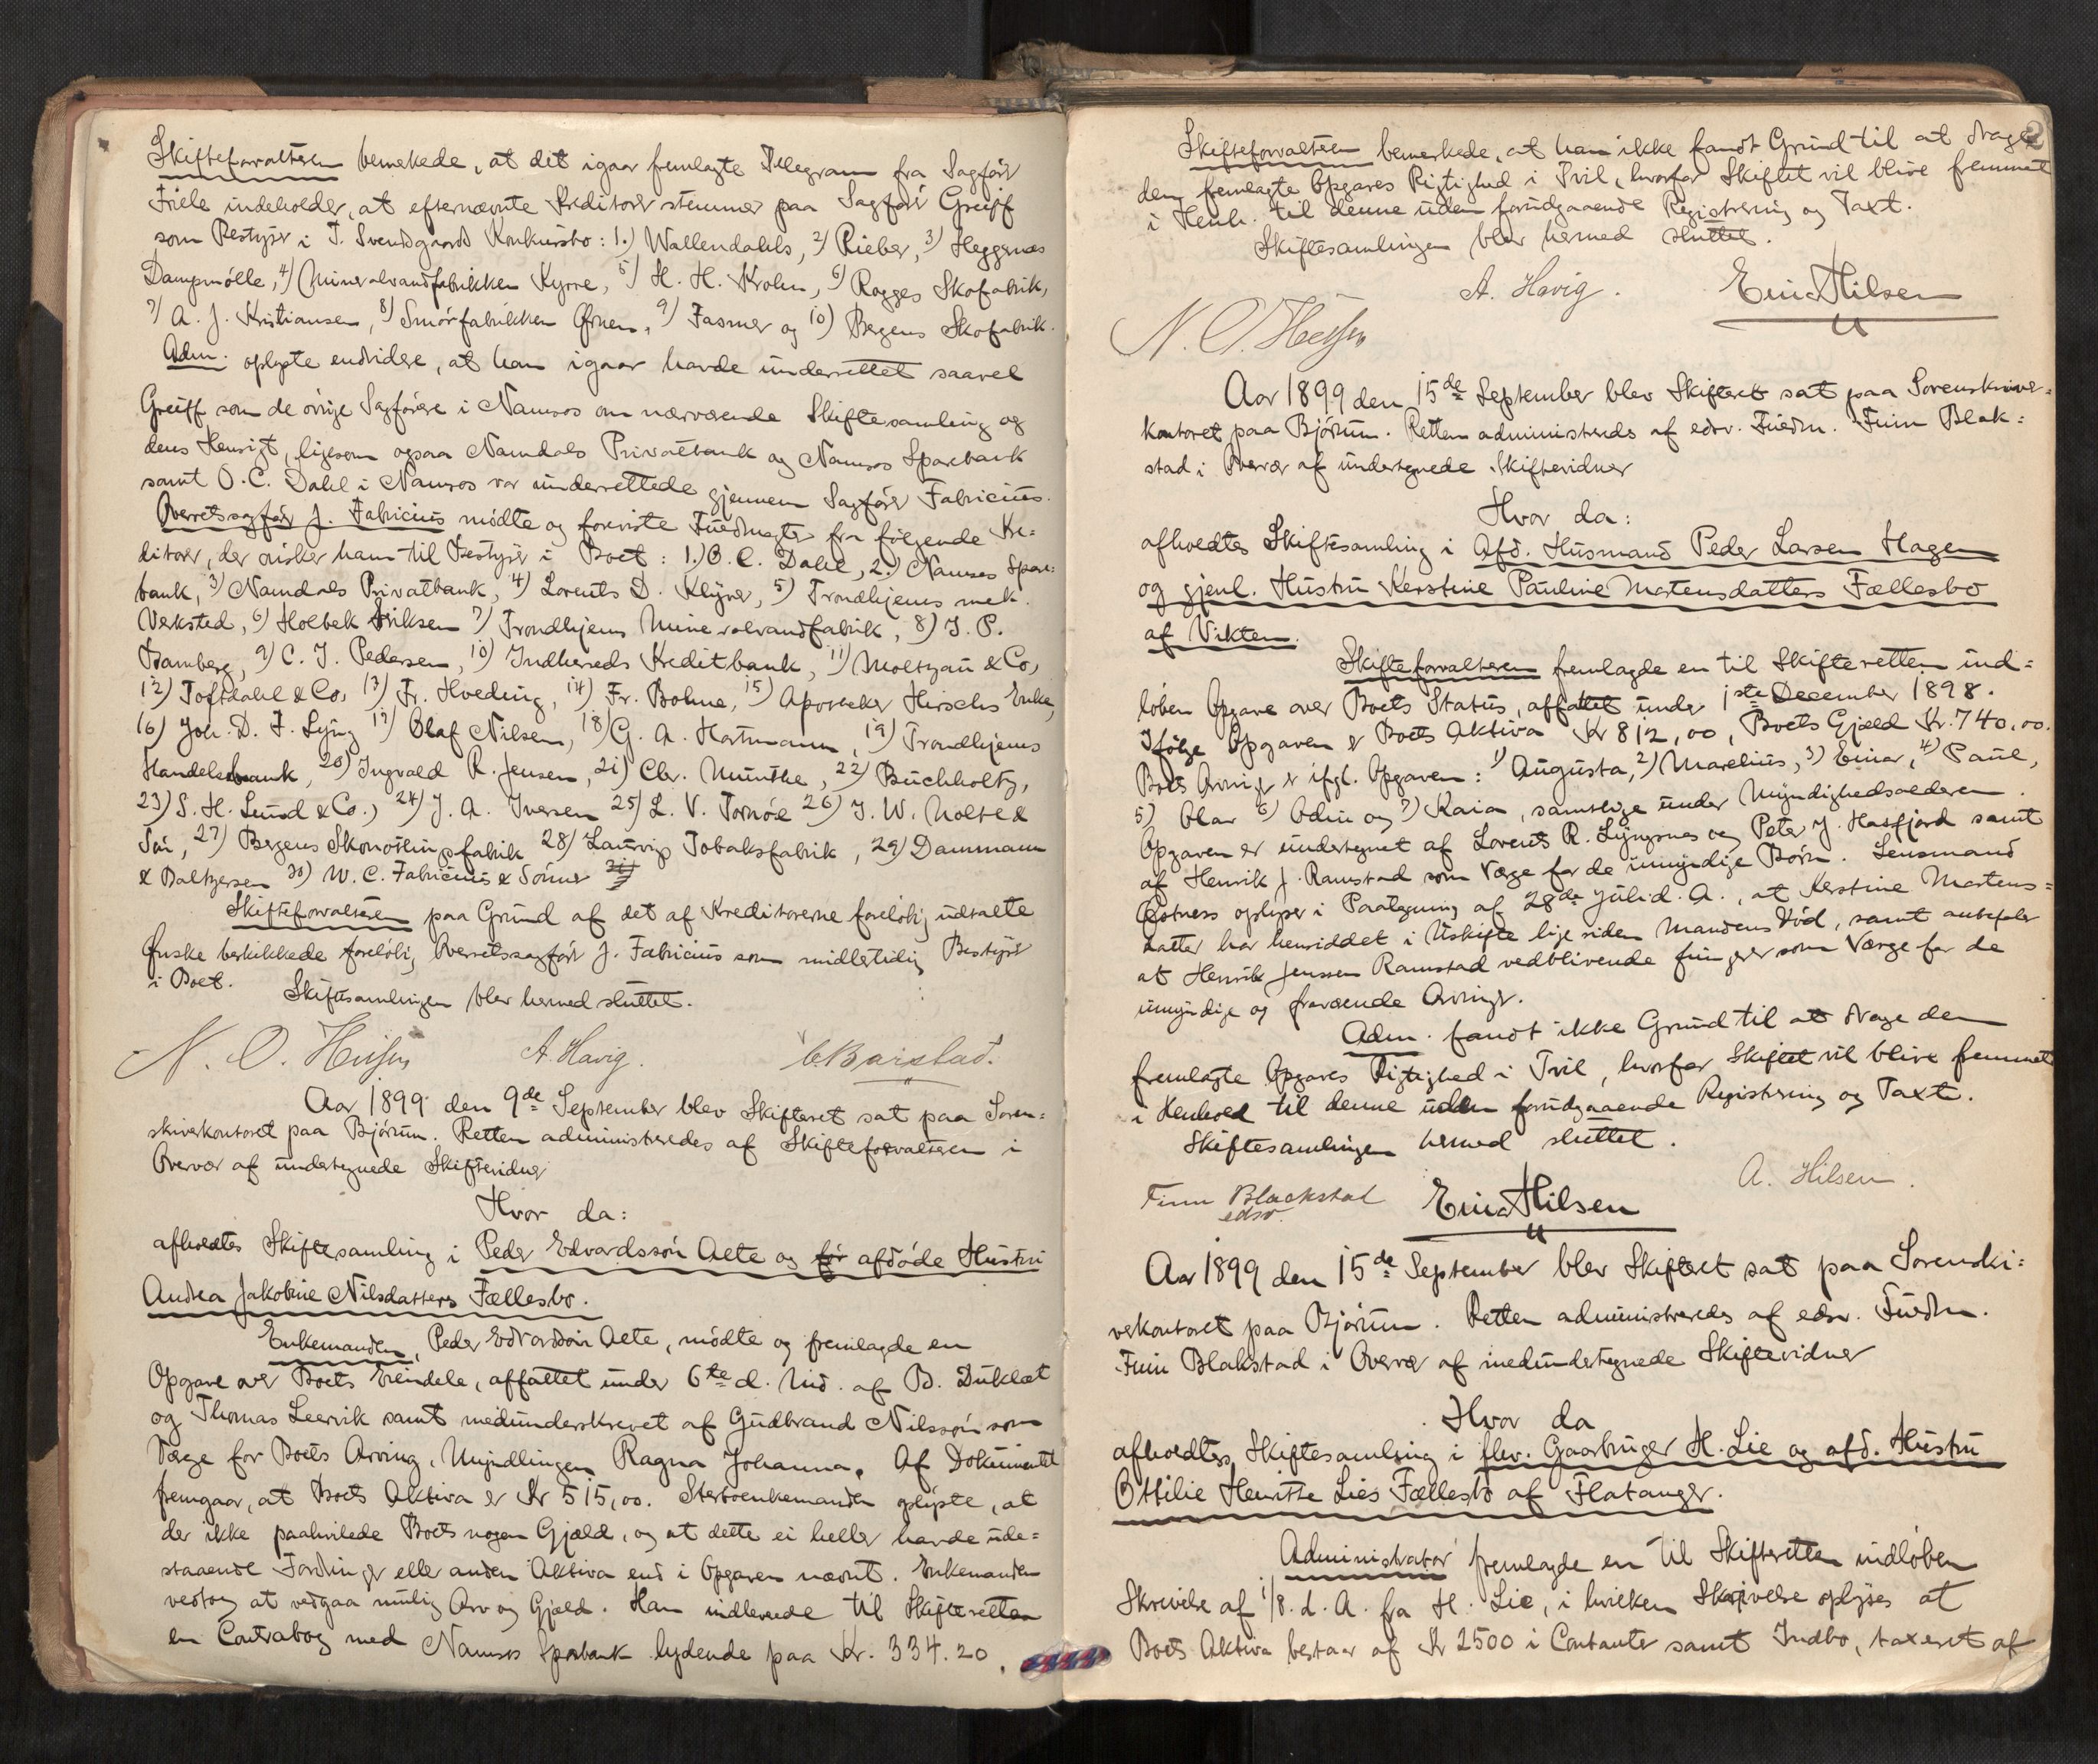 Skifteforvalteren bemærkede, at det igaar fremlagte Telegram fra Sagfører
Friele indeholder, at efternævnte Kreditorer stemmer paa Sagfører Greiff
som Bestyrer i J. Svendgaard Konkursbo: 1.) Wallendahls, 2) Rieber, 3) Heggernæs
Dampmølle, 4) Mineralvandfabrikken Kyrre, 5) H. H. Krohn, 6) Rogges Skofabrik,
7) A. J. Kristiansen, 8) Smørfabrikken Ørnen, 9) Fasmer og 10) Bergens Skofabrik.
Adm. oplyste endvidere, at han igaar havde underrettet saavel
Greiff som de øvrige Sagførere i Namsos om nærværende Skiftesamling og
dens Hensigt, ligesom ogsaa Namdals Privatbank og Namsos Sparebank
samt O. C. Dahl i Namsos var underrettede gjennem Sagfører Fabricius.
Overretssagfører J. Fabricius mødte og foreviste Fuldmagter fra følgende Kre=
ditorer, der ønsker ham til Bestyrer i Boet: 1.) O. C. Dahl, 2.) Namsos Spare=
bank, 3) Namdals Privatbank, 4) Lorents D. Klüver, 5) Trondhjems mek.
Verksted, 6) Holbek Eriksen 7) Trondhjems Mineralvandfabrik, 8) J. P.
Bamberg, 9) C. J. Pedersen, 10) Indherreds Kreditbank, 11) Moltzau & Co,
12) Toftdahl & Co, 13) Fr. Hveding, 14) Fr. Bohne, 15) Apotheker Hirschs Enke,
16) Joh. D. F. Lyng 17) Olaf Nilsen, 18) G. A. Hartmann, 19) Trondhjems
Handelsbank, 20) Ingvald R. Jensen, 21) Chr. Munthe, 22) Buchholtz,
23) S. H. Lund & Co., 24) J. A. Iversen 25) L. V. Tornøe 26) J. W. Molte &
Søn, 27) Bergens Skonøtlingsfabrik 28) Laurvig Tobaksfabrik, 29) Dammann
& Baltzersen 30) W. C. Fabricius & Sønner 31)
Skifteforvalteren paa Grund af det af Kreditorerne foreløbig udtalte
Ønske beskikkede foreløbig Overretssagfører J. Fabricius som midlertidig Bestyrer
i Boet.
Skiftesamlingen blev hermed sluttet.
A. Havig. C. Barstad.
Aar 1899 den 9de September blev Skifteret sat paa Soren=
skriverkontoret paa Bjørum. Retten administreredes af Skifteforvalteren i
Overvær af undertegnede Skiftevidner
Hvor da:
afholdtes Skiftesamling i Peder Edvardssøn Aete og før afdøde Hustru
Andrea Jakobine Nilsdatters Fællesbo.
Enkemanden, Peder Edvardssøn Aete, mødte og fremlagde en
Opgave over Boets Eiendele, affattet under 6te d. Md. af B. Duklæt
og Thomas Leervik samt medunderskrevet af Gudbrand Nilssøn som
Værge for Boets Arving, Myndlingen Ragna Johanna. Af Dokumentet
fremgaar, at Boets Aktiva er Kr 515,00. Sterboenkemanden oplyste, at
der ikke paahvilede Boets nogen Gjæld, og at dette ei heller havde ude=
staaende Fordringer eller anden Aktiva end i Opgaven nævnt. Enkemanden
vedtog at vedgaa mulig Arv og Gjæld. Han indleverede til Skifteretten
en Contrabog med Namsos Sparebank lydende paa Kr. 334.20.
2
Skifteforvalteren bemærkede, at han ikke fandt Grund til at drage
den fremlagte Opgaves Rigtighed i Tvil, hvorfor Skiftet vil blive fremmet
i Henh. til denne uden forudgaaende Registrering og Taxt.
Skiftesamlingen blev hermed sluttet.
A. Havig. Einar Hilsen
Aar 1899 den 15de September blev Skifteret sat paa Sorenskriver=
kontoret paa Bjørum. Retten administreredes af edsv. Fuldm. Finn Blak=
stad i Overvær af undertegnede Skiftevidner
Hvor da:
afholdtes Skiftesamling i Afd. Husmand Peder Larsen Hagen
og gjenl. Hustru Kerstine Pauline Mortensdatters Fællesbo
af Vikten.
Skifteforvalteren fremlagde en til Skifteretten ind=
løben Opgave over Boets Status, affattet under 1ste December 1898.
Ifølge Opgaven er Boets Aktiva Kr 812,00, Boets Gjæld Kr. 740,00.
Boets Arvinger er ifgl. Opgaven: 1) Augusta, 2) Marelius, 3) Einar, 4) Paul,
5) Olav 6) Odin og 7) Kaia, samtlige under Myndighedsalderen.
Opgaven er undertegnet af Lorents R. Lyngsnes og Peter J. Hasfjord samt
af Henrik J. Ramstad som Værge for de umyndige Børn. Lensmand
Qvotness oplyser i Paategning af 28de Juli d. A., at Kerstine Mortens=
datter har hensiddet i Uskifte lige siden Mandens Død, samt anbefaler
at Henrik Jenssen Ramstad vedblivende fungerer som Værge for de
umyndige og fraværende Arvinger.
Adm. fandt ikke Grund til at drage den
fremlagte Opgaves Rigtighed i Tvil, hvorfor Skiftet vil blive fremmet
i Henhold til denne uden forudgaaende Registrering og Taxt.
Skiftesamlingen hermed sluttet.
A. Hilsen.
Finn Blackstad Einar Hilsen
edsv.
Aar 1899 den 15de September blev Skifteret sat paa Sorenskri=
verkontoret paa Bjørum. Retten administreredes af edsv. Fuldm.
Finn Blakstad i Overvær af medundertegnede Skiftevidner
Hvor da
afholdtes Skiftesamling i flev. Gaardbruger H. Lie og afd. Hustru
Ottilie Henritte Lies Fællesbo af Flatanger.
Administrator fremlagde en til Skifteretten indløben
Skrivelse af 1/8. d. A. fra H. Lie, i hvilken Skrivelse oplyses at
Boets Aktiva bestaar af Kr 2500 i Contanter samt Indbo, taxeret af